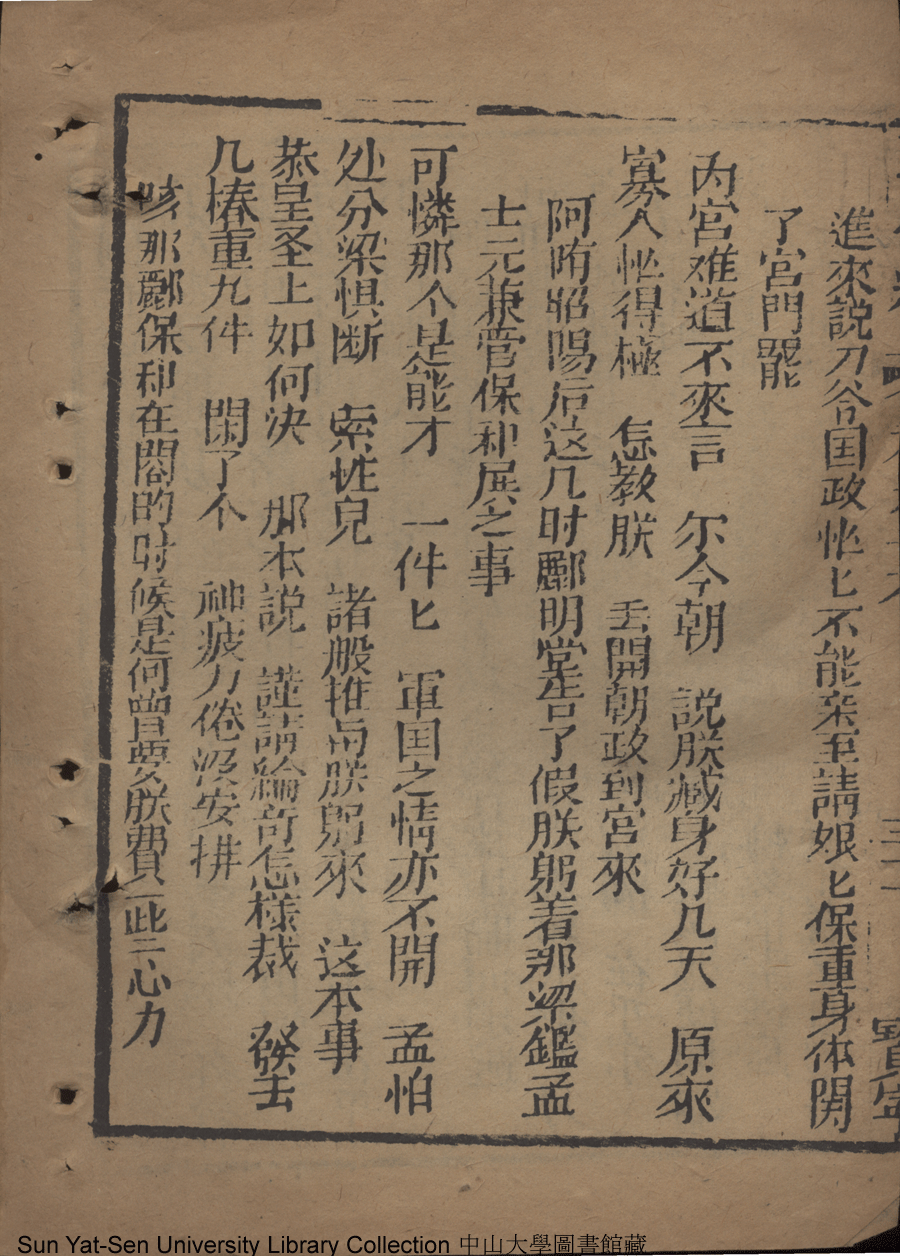 進來説刀谷国政怅匕不能亲至請娘匕保重身体閉
了宮門罷
内宮难道不來言　尔今朝　説朕藏身好几天　原來
寡人怅得極　怎教朕　丢開朝政到宮來
阿唷昭陽后这几时酈明堂告了假朕躬着那梁鑑孟
士元兼管保和展之事
可憐那个是能才　一件匕　軍国之情亦不開　孟怕
处分梁惧断　索性兒　諸般推与朕躬來　这本事
恭呈圣上如何决　那本説　謹請綸音怎様裁　發去
几樁重九件　閉了个　神疲力倦没安排
咳那酈保和在閣的时候是何曽要朕費一些心力
Sun Yat-Sen University Library Collection 中山大學圖書館藏